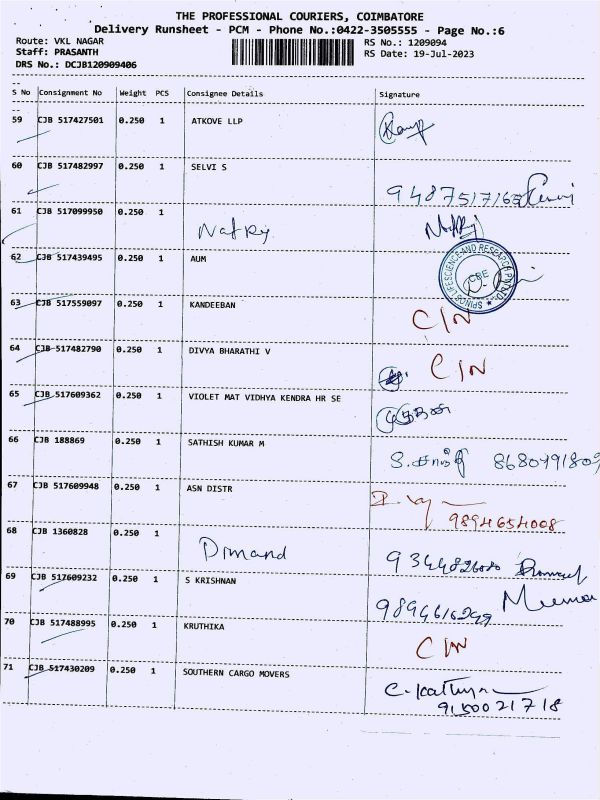 THE PROFESSIONAL COURIERS, COIMBATORE
Delivery Runsheet - PCM - Phone No.:0422-3505555 - Page No.:6
Route: VKL NAGAR RS No.: 1209094
Staff: PRASANTH RS Date: 19-Jul-2023
DRS No.: DCJB120909406
S No Consignment No Weight PCS Consignee Details Signature
59 CJB 517427501 0.250 1 ATKOVE LLP
60 CJB 517482997 0.250 1 SELVI S
61 CJB 517099950 0.250 1
62 CJB 517439495 0.250 1 AUM
SPINOS LIFESCIENCE AND RESEARCH PVT LTD. CBE
63 CJB 517559097 0.250 1 KANDEEBAN C/N
64 CJB 517482790 0.250 1 DIVYA BHARATHI V C/N
65 CJB 517609362 0.250 1 VIOLET MAT VIDHYA KENDRA HR SE
66 CJB 188869 0.250 1 SATHISH KUMAR M 8680791809
67 CJB 517609948 0.250 1 ASN DISTR
9894654008
68 CJB 1360828 0.250 1 Dmand
69 CJB 517609232 0.250 1 S KRISHNAN
70 CJB 517488995 0.250 1 KRUTHIKA C/N
71 CJB 517430209 0.250 1 SOUTHERN CARGO MOVERS
9150021718